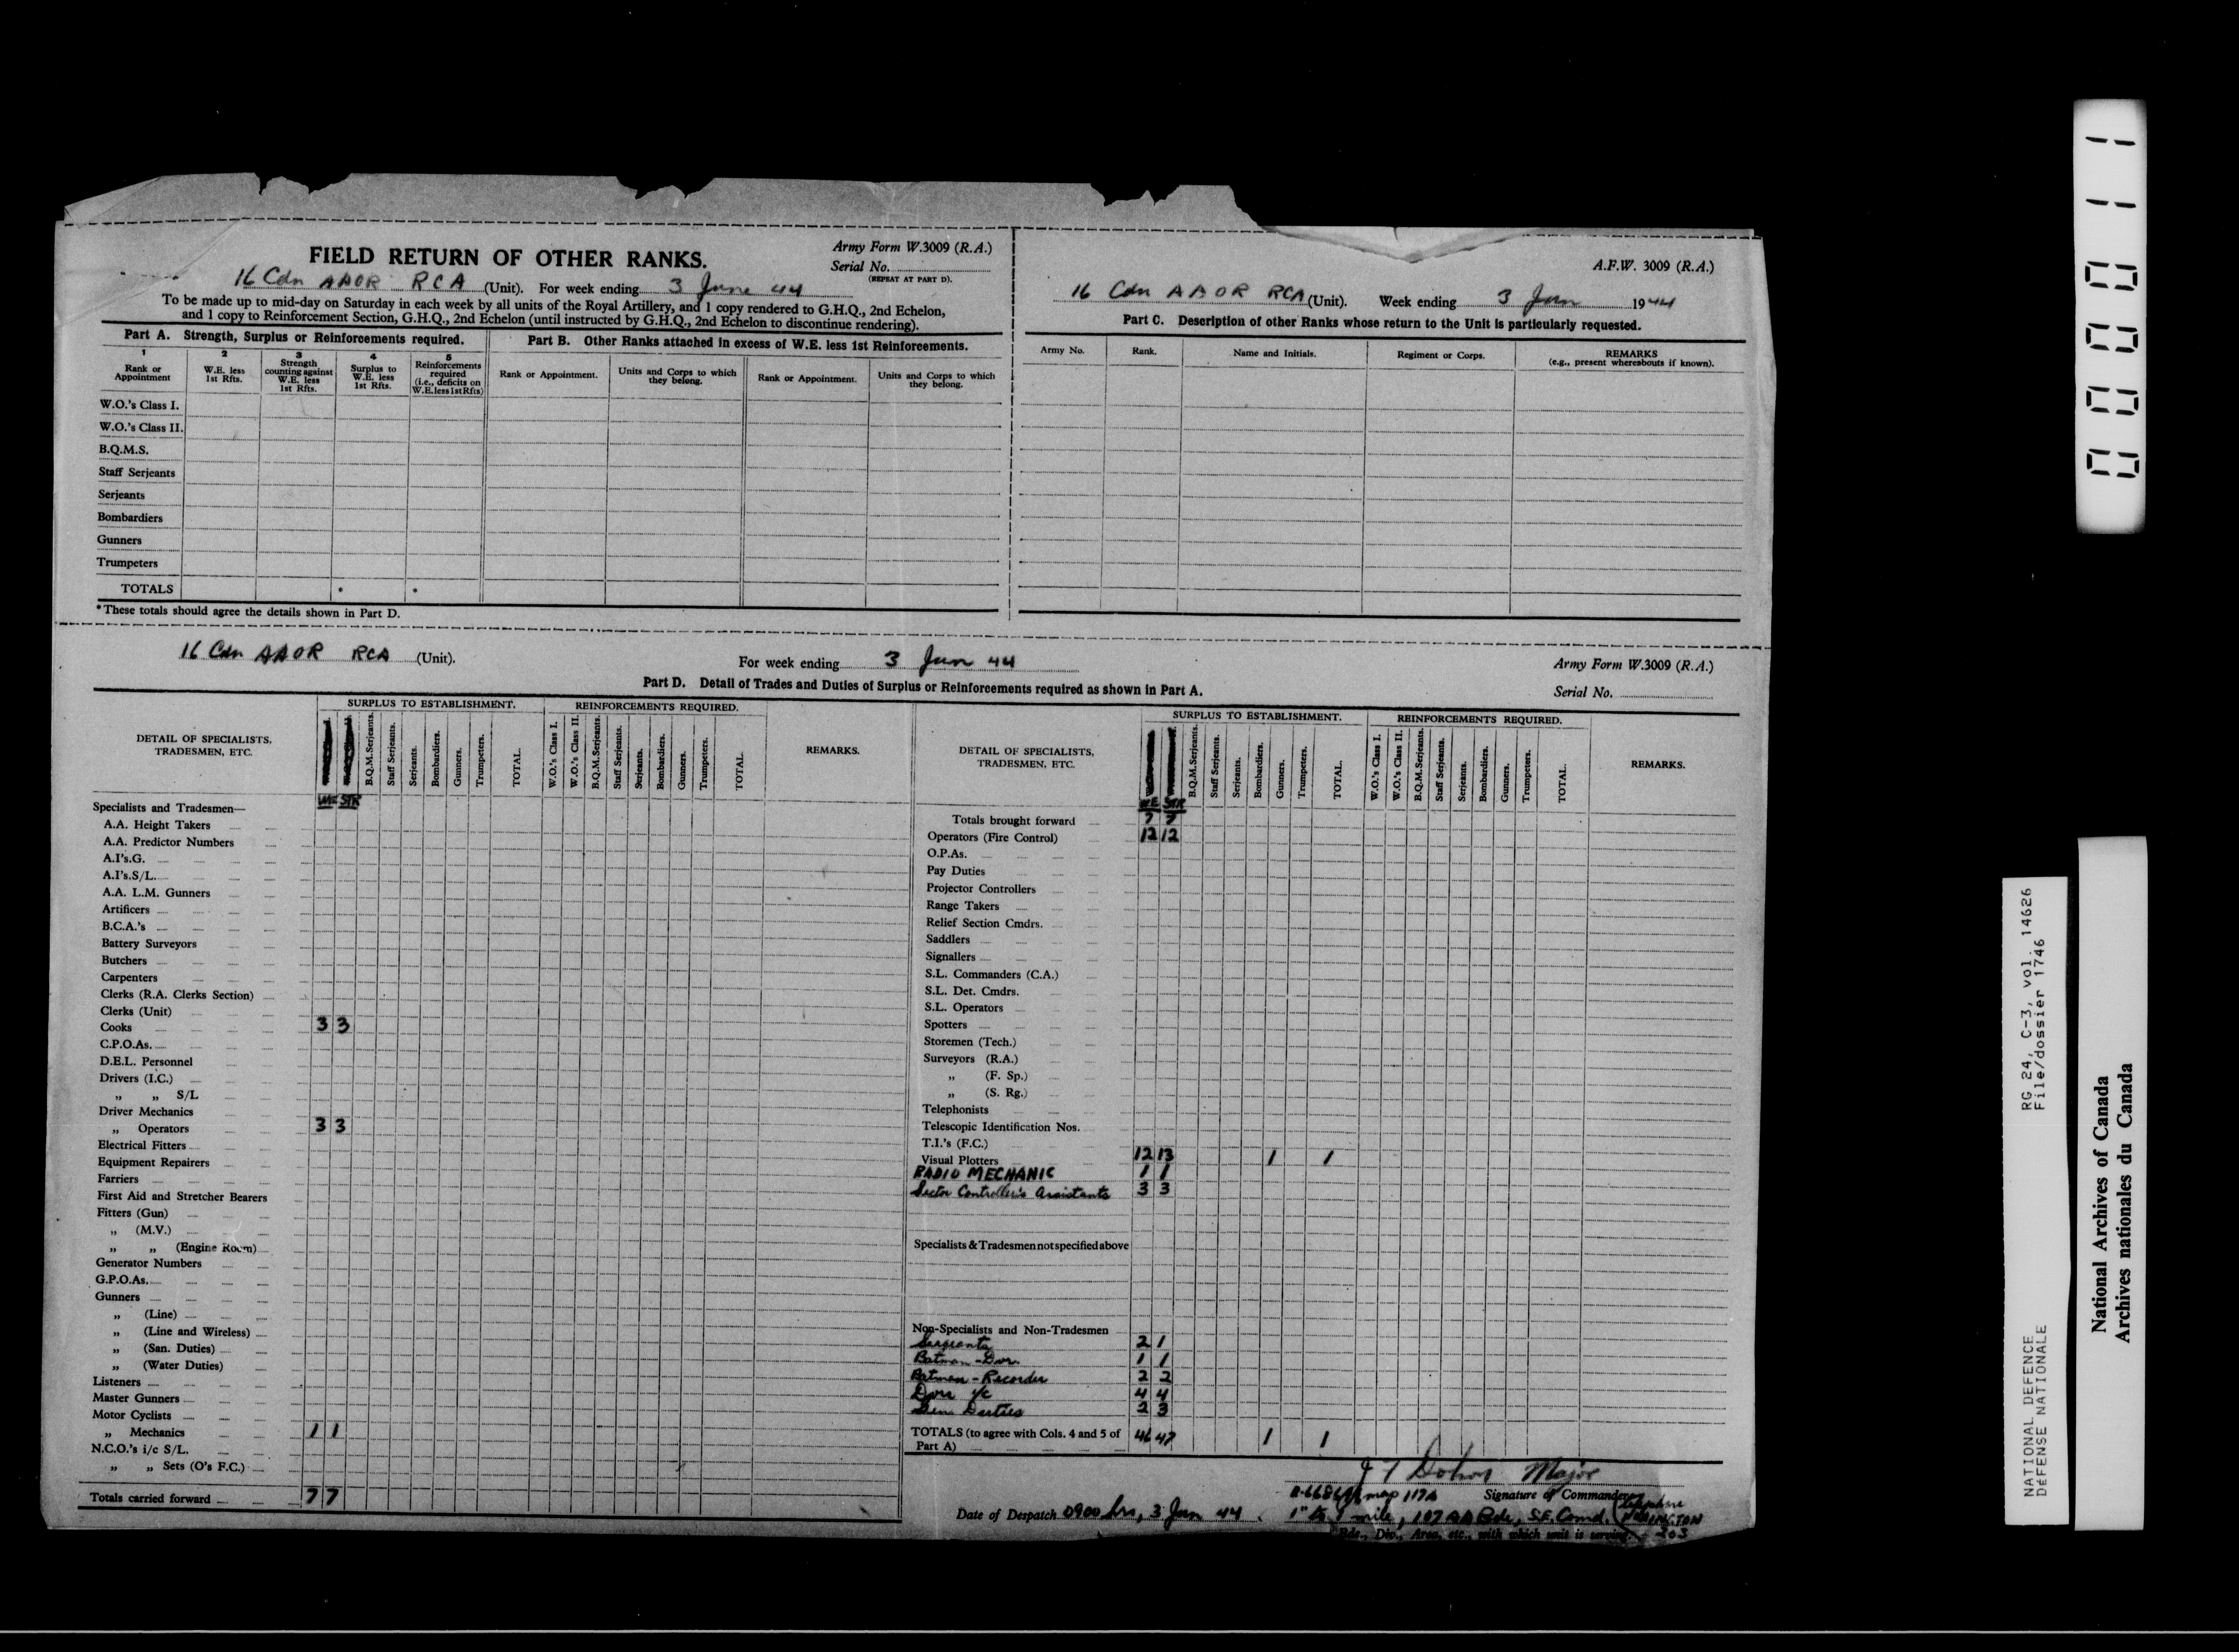 FIELD RETURN OF OTHER RANKS.
Army Form W.3009 (R.A.)
Serial No.
(REPEAT AT PART D).
16 Cdn AAOR RCA (Unit). For week ending 3 June 44
To be made up to mid-day on Saturday in each week by all units of the Royal Artillery, and 1 copy rendered to G.H.Q., 2nd Echelon,
and 1 copy to Reinforcement Section, G.H.Q., 2nd Echelon (until instructed by G.H.Q., 2nd Echelon to discontinue rendering).
Part A. Strength, Surplus or Reinforcements required.
1 2 3 4 5
Rank or Appointment
W.E. less 1st Rfts.
Strength counting against W.E. less 1st Rfts.
Surplus to W.E. less 1st Rfts.
Reinforcements required (i.e., deficits on W.E. less 1st Rfts)
W.O.'s Class I.
W.O.'s Class II.
B.Q.M.S.
Staff Serjeants
Serjeants
Bombardiers
Gunners
Trumpeters
TOTALS * *
*These totals should agree the details shown in Part D.
Part B. Other Ranks attached in excess of W.E. less 1st Reinforcements.
Rank or Appointment. Units and Corps to which they belong. Rank or Appointment. Units and Corps to which they belong.
A.F.W. 3009 (R.A.)
16 Cdn AAOR RCA (Unit). Week ending 3 Jun 1944
Part C. Description of other Ranks whose return to the Unit is particularly requested.
Army No. Rank. Name and Initials. Regiment or Corps. REMARKS
(e.g., present whereabouts if known).
16 Cdn AAOR RCA (Unit). For week ending 3 Jun 44
Army Form W.3009 (R.A.)
Serial No.
Part D. Detail of Trades and Duties of Surplus or Reinforcements required as shown in Part A.
DETAIL OF SPECIALISTS, TRADESMEN, ETC.
SURPLUS TO ESTABLISHMENT.
B.Q.M.Serjeants. Staff Serjeants. Serjeants. Bombardiers. Gunners. Trumpeters. TOTAL.
REINFORCEMENTS REQUIRED.
W.O.'s Class I. W.O.'s Class II. B.Q.M.Serjeants. Staff Serjeants. Serjeants. Bombardiers. Gunners. Trumpeters. TOTAL.
REMARKS.
WE STR
Specialists and Tradesmen—
A.A. Height Takers
A.A. Predictor Numbers
A.I's.G.
A.I's.S/L.
A.A. L.M. Gunners
Artificers
B.C.A.'s
Battery Surveyors
Butchers
Carpenters
Clerks (R.A. Clerks Section)
Clerks (Unit)
Cooks 3 3
C.P.O.As.
D.E.L. Personnel
Drivers (I.C.)
„ „ S/L
Driver Mechanics
„ Operators 3 3
Electrical Fitters
Equipment Repairers
Farriers
First Aid and Stretcher Bearers
Fitters (Gun)
„ (M.V.)
„ „ (Engine Room)
Generator Numbers
G.P.O.As.
Gunners
„ (Line)
„ (Line and Wireless)
„ (San. Duties)
„ (Water Duties)
Listeners
Master Gunners
Motor Cyclists
„ Mechanics 1 1
N.C.O.'s i/c S/L.
„ „ Sets (O's F.C.)
Totals carried forward 7 7
DETAIL OF SPECIALISTS, TRADESMEN, ETC.
SURPLUS TO ESTABLISHMENT.
B.Q.M.Serjeants. Staff Serjeants. Serjeants. Bombardiers. Gunners. Trumpeters. TOTAL.
REINFORCEMENTS REQUIRED.
W.O.'s Class I. W.O.'s Class II. B.Q.M.Serjeants. Staff Serjeants. Serjeants. Bombardiers. Gunners. Trumpeters. TOTAL.
REMARKS.
WE STR
Totals brought forward 7 7
Operators (Fire Control) 12 12
O.P.As.
Pay Duties
Projector Controllers
Range Takers
Relief Section Cmdrs.
Saddlers
Signallers
S.L. Commanders (C.A.)
S.L. Det. Cmdrs.
S.L. Operators
Spotters
Storemen (Tech.)
Surveyors (R.A.)
„ (F. Sp.)
„ (S. Rg.)
Telephonists
Telescopic Identification Nos.
T.I.'s (F.C.)
Visual Plotters 12 13 1 1
RADIO MECHANIC 1 1
Sector Controller's Assistants 3 3
Specialists & Tradesmen not specified above
Non-Specialists and Non-Tradesmen
Sargeants 2 1
Batman-Dvr. 1 1
Batman-Recorder 2 2
Dvrs i/c 4 4
Gen Duties 2 3
TOTALS (to agree with Cols. 4 and 5 of Part A) 46 47 1 1
Major
Signature of Commander
map 117A
Date of Despatch 0900 hrs, 3 Jun 44. 1" to 1 mile, 107 AA Bde, S.E. Comd.
Bde., Div., Area, etc., with which unit is serving. 203
0000011
RG 24, C-3, vol. 14626
File/dossier 1746
NATIONAL DEFENCE
DÉFENSE NATIONALE
National Archives of Canada
Archives nationales du Canada